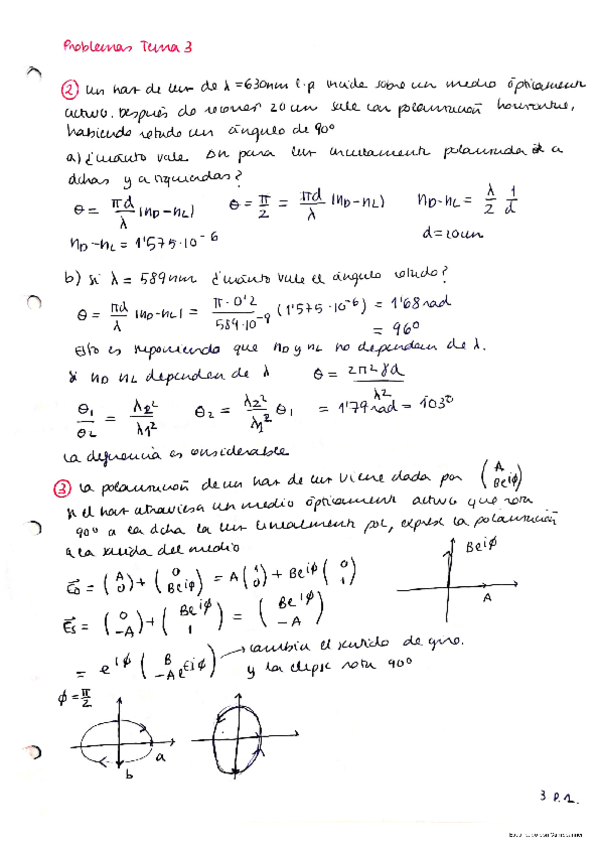 Problemas Tema 3
② Un haz de luz de λ = 630nm l.p incide sobre un medio ópticamente
activo. Después de recorrer 20cm sale con polarización horizontal,
habiendo rotado un ángulo de 90º
a) ¿cuánto vale Δn para luz circularmente polarizada a
dchas y a izquierdas?
θ = πd/λ |nD-nL|   θ = π/2 = πd/λ |nD-nL|   nD-nL = λ/2 1/d
nD-nL = 1'575·10⁻⁶   d=20cm
b) si λ = 589nm ¿cuánto vale el ángulo rotado?
θ = πd/λ |nD-nL| = π·0'2/589·10⁻⁹ (1'575·10⁻⁶) = 1'68 rad
= 96º
Esto es suponiendo que nD y nL no dependen de λ.
si nD nL dependen de λ   θ = 2π²γd/λ²
θ1/θ2 = λ2²/λ1²   θ2 = λ2²/λ1² θ1 = 1'79 rad = 103º
La diferencia es considerable
③ La polarización de un haz de luz viene dada por (A Be^iφ)
si el haz atraviesa un medio ópticamente activo que rota
90º a la dcha la luz linealmente pol, exprese la polarización
a la salida del medio
= (A 0) + (0 Be^iφ) = A(1 0) + Be^iφ (0 1)
Be^iφ
A
Es = (0 -A) + (Be^iφ 1) = (Be^iφ -A)
= e^iφ → cambia el sentido de giro.
y la elipse rota 90º
φ = π/2
a
b
3 P.1.